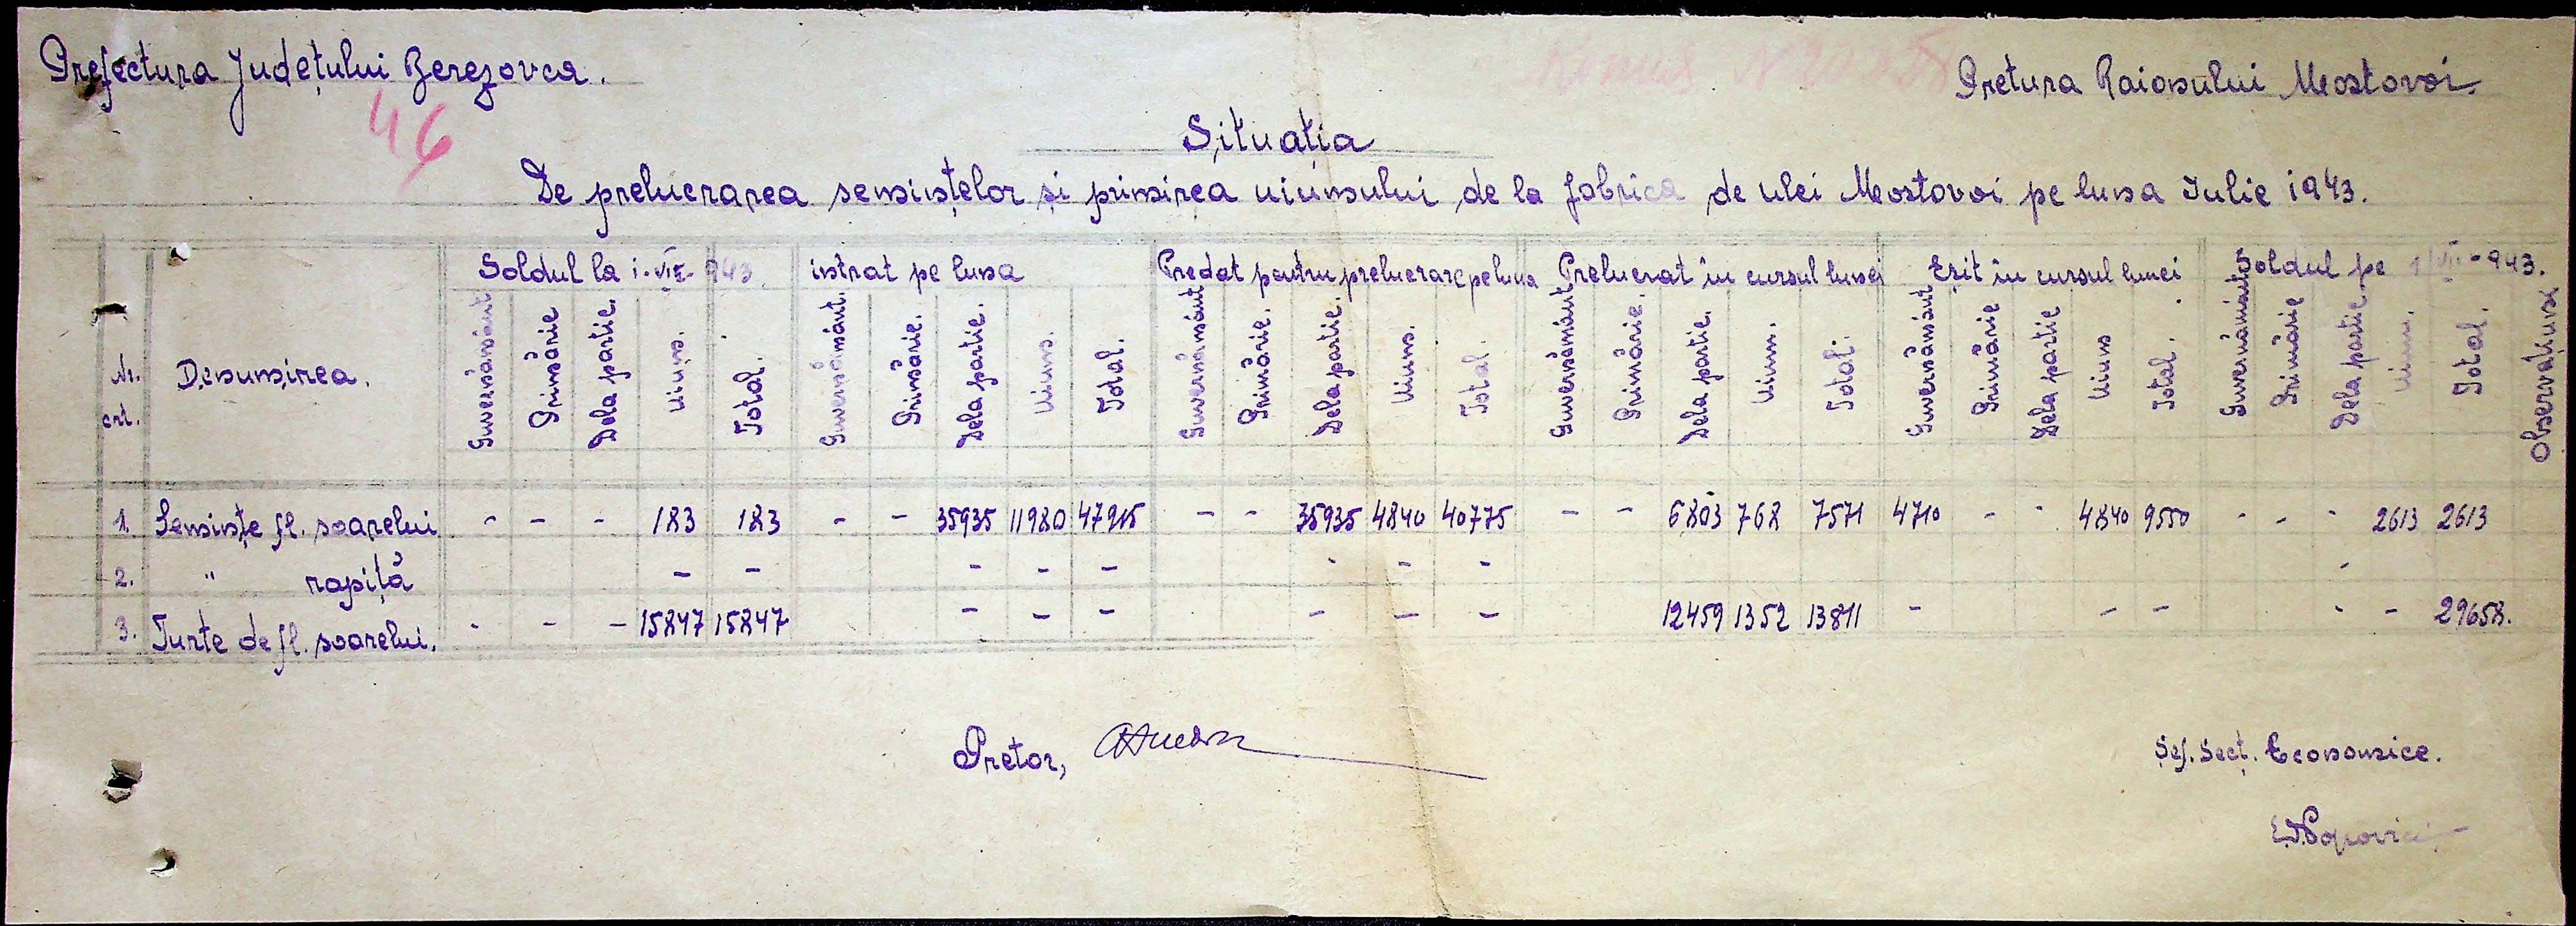 Prefectura Județului Berezovca.
Pretura Raionului Mostovoi.
46
Situația
De prelucrarea semințelor și primirea uiumului de la fabrica de ulei Mostovoi pe luna Iulie 1943.
Nr. crt. Denumirea. Soldul la 1-VII-943. intrat pe luna Predat pentru prelucrare pe luna Prelucrat în cursul lunei Eșit în cursul lunei Soldul pe 1/VIII-943. Observațiuni
Guvernământ Primărie Dela partic. Uium. Total. Guvernământ. Primărie. Dela partic. Uium. Total. Guvernământ Primărie. Dela partic. Uium. Total. Guvernământ Primărie. Dela partic. Uium. Total. Guvernământ Primărie Dela partic Uium Total. Guvernământ Primărie Dela partic Uium. Total.
1. Semințe fl. soarelui - - - 183 183 - - 35935 11980 47915 - - 35935 4840 40775 - - 6803 768 7571 4710 - - 4840 9550 - - - 2613 2613
2. " rapiță - - - - - - - - -
3. Turte de fl. soarelui. - - - 15847 15847 - - - - - - 12459 1352 13811 - - - - - 29658.
Pretor,
Șef. Secț. Economice.
E. Popovici